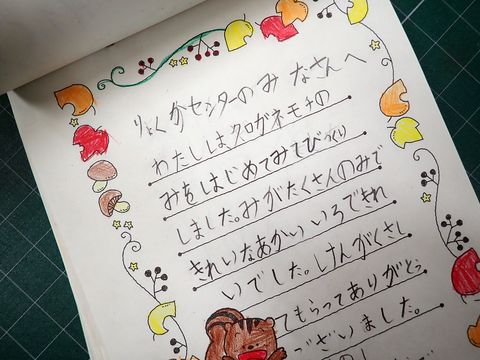 りょくかセンターのみなさんへ
わたしは、クロガネモチの
みをはじめてみてびっくり
しました。みがたくさんのみで
きれいなあかいいろできれ
いでした。けんがくさし
てもらってありがとう
ございました。